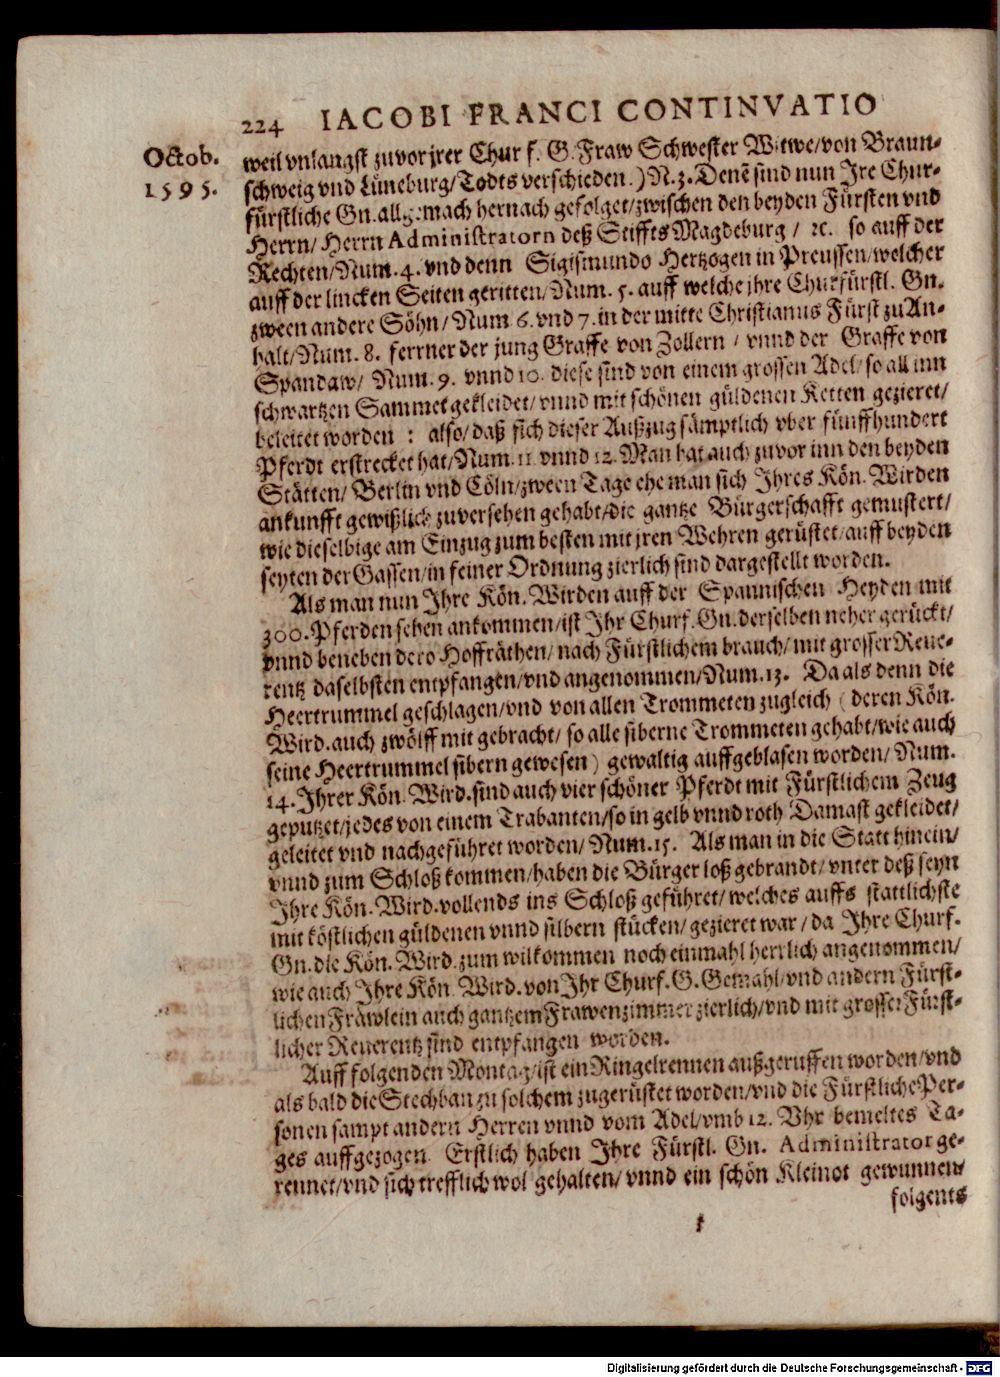 224 IACOBI FRANCI CONTINVATIO
Octob.
1595.
weil vnlangst zuvor jrer Chur f. G. Fraw Schwester Witwe/von Braun-
schweig vnd Lüneburg/Todts verschieden.) N. 3. Denē sind nun Jre Chur-
fürstliche Gn. allgemach hernach gefolget/zwischen den beyden Fürsten vnd
Herrn/ Herrn Administratorn deß Stiffts Magdeburg / ꝛc. so auff der
Rechten/Num. 4. vnd denn Sigismundo Hertzogen in Preussen/welcher
auff der lincken Seiten geritten/Num. 5. auff welche jhre Churfürstl. Gn.
zween andere Söhn/Num. 6. vnd 7. in der mitte Christianus Fürst zu An-
halt/Num. 8. ferrner der jung Graffe von Zollern / vnnd der Graffe von
Spandaw/ Num. 9. vnnd 10. diese sind von einem grossen Adel/so all inn
schwartzen Sammet gekleidet/vnnd mit schönen güldenen Ketten gezieret/
beleitet worden : also/daß sich dieser Außzug sämptlich vber fünffhundert
Pferdt erstrecket hat/Num. 11. vnnd 12. Man hat auch zuvor inn den beyden
Stätten/ Berlin vnd Cöln/zween Tage ehe man sich Jhres Kön. Wirden
ankunfft gewißlich zuversehen gehabt/die gantze Bürgerschafft gemustert/
wie dieselbige am Einzug zum besten mit jren Wehren gerüstet/auff beyden
seyten der Gassen/in feiner Ordnung zierlich sind dargestellt worden.
Als man nun Jhre Kön. Wirden auff der Spannischen Heyden mit
300. Pferden sehen ankommen/ist Jhr Churf. Gn. derselben neher gerückt/
vnnd beneben dero Hoffräthen/ nach Fürstlichem brauch/ mit grosser Reue-
rentz daselbsten entpfangen/vnd angenommen/Num. 13. Da als denn die
Heertrummel geschlagen/vnd von allen Trommeten zugleich ( deren Kön.
Wird. auch zwölff mit gebracht/ so alle silberne Trommeten gehabt/wie auch
seine Heertrummel silbern gewesen) gewaltig auffgeblasen worden/ Num.
14. Jhrer Kön. Wird. sind auch vier schöner Pferdt mit Fürstlichem Zeug
geputzet/jedes von einem Trabanten/so in gelb vnnd roth Damast gekleidet/
geleitet vnd nachgeführet worden/ Num. 15. Als man in die Statt hinein/
vnnd zum Schloß kommen/haben die Bürger loß gebrandt/ vnter deß seyn
Jhre Kön. Wird. vollends ins Schloß geführet/ welches auffs stattlichste
mit köstlichen güldenen vnnd silbern stücken/ gezieret war / da Jhre Churf.
Gn. die Kön. Wird. zum wilkommen noch einmahl herrlich angenommen/
wie auch Jhre Kön. Wird. von Jhr Churf. G. Gemahl/vnd andern Fürst-
lichen Fräwlein auch gantzem Frawenzimmer zierlich/vnd mit grosser Fürst-
licher Reuerentz sind entpfangen worden.
Auff folgenden Montag/ist ein Ringelrennen außgeruffen worden/vnd
als bald die Stechban zu solchem zugerüstet worden/vnd die Fürstliche Per-
sonen sampt andern Herren vnnd vom Adel/vmb 12. Vhr bemeltes Ta-
ges auffgezogen. Erstlich haben Jhre Fürstl. Gn. Administrator ge-
rennet/vnd sich trefflich wol gehalten/ vnnd ein schön Kleinot gewunnen/
folgents
Digitalisierung gefördert durch die Deutsche Forschungsgemeinschaft - DFG